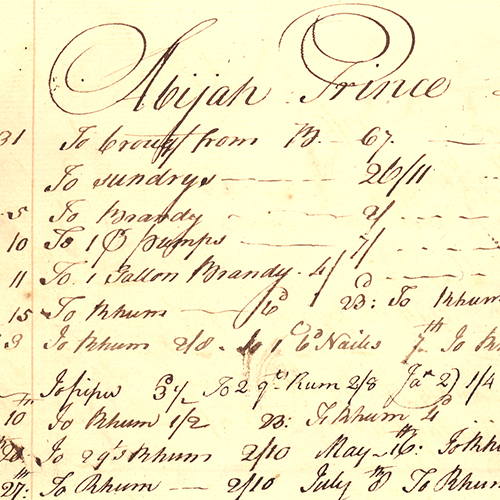 Abijah Prince
31 To brout from B. 67.
To sundrys 26/11
5 To Brandy 2/
10 To 1 P pumps 7/
11 To 1 Gallon Brandy. 4/
15 To Rhum 6d 23: To Rhum
9 To Rhum 2/8. to 1 C 6d Nails 7th To R
To pipes 3d To 2 qts Rum 2/8 Jar 2) 1/4
10 To Rhum 1/2 23: To Rhum 4d
20 To 2 qts Rhum 2/10 May 16th: To Rh
27th: To Rhum 2/10 July 8th To Rhum